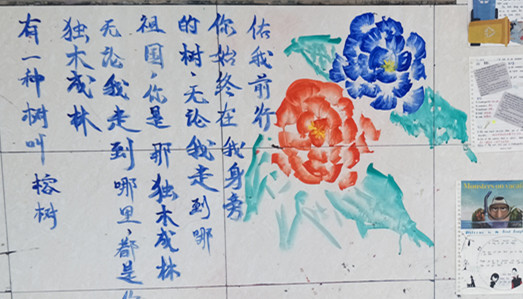 有一种树叫榕树
独木成林
无论我走到哪里、都是
祖国，你是那独木成林
的树，无论我走到哪
你始终在我身旁
佑我前行
Monsters on